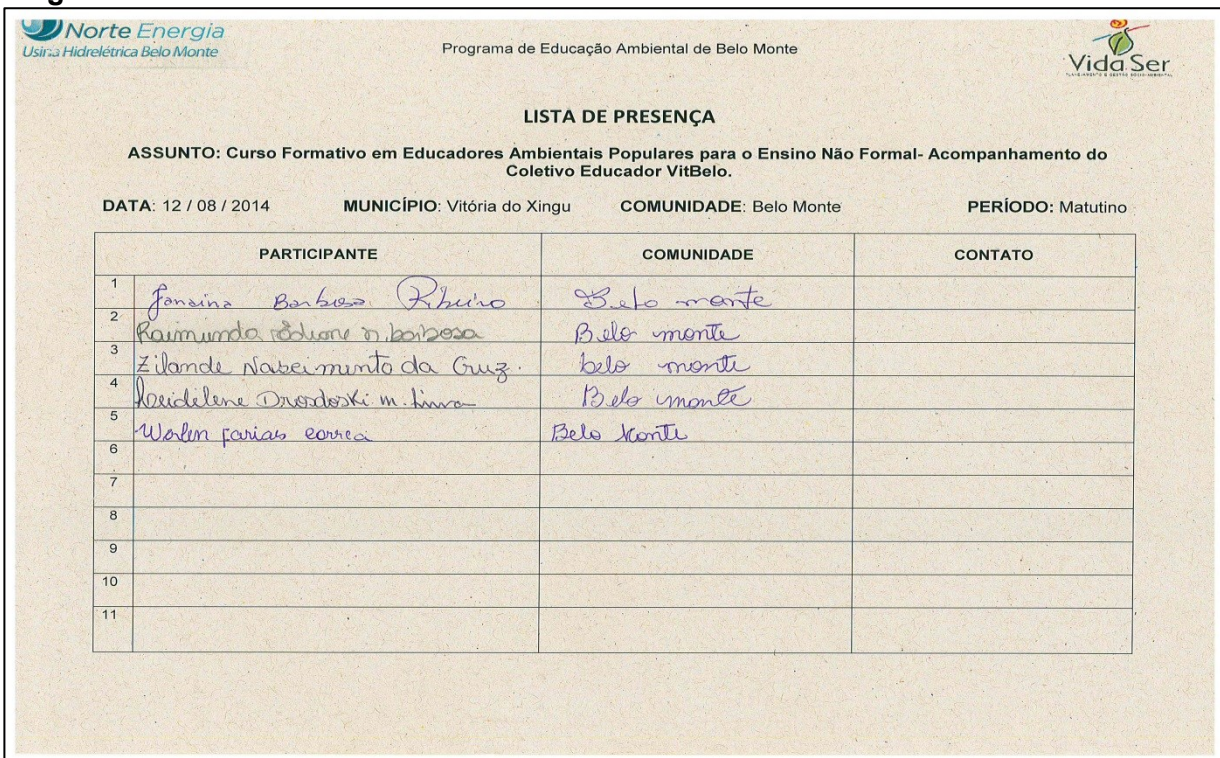 Norte Energia
Usina Hidrelétrica Belo Monte
Programa de Educação Ambiental de Belo Monte
Vida Ser
LISTA DE PRESENÇA
ASSUNTO: Curso Formativo em Educadores Ambientais Populares para o Ensino Não Formal- Acompanhamento do
Coletivo Educador VitBelo.
DATA: 12 / 08 / 2014 MUNICÍPIO: Vitória do Xingu COMUNIDADE: Belo Monte PERÍODO: Matutino
PARTICIPANTE COMUNIDADE CONTATO
1 Janaina Barbosa Ribeiro Belo monte
2 Raimunda barbosa Belo monte
3 Zilande Nascimento da Cruz. belo monte
4 m. Lima Belo monte
5 farias correa Belo Monte
6
7
8
9
10
11